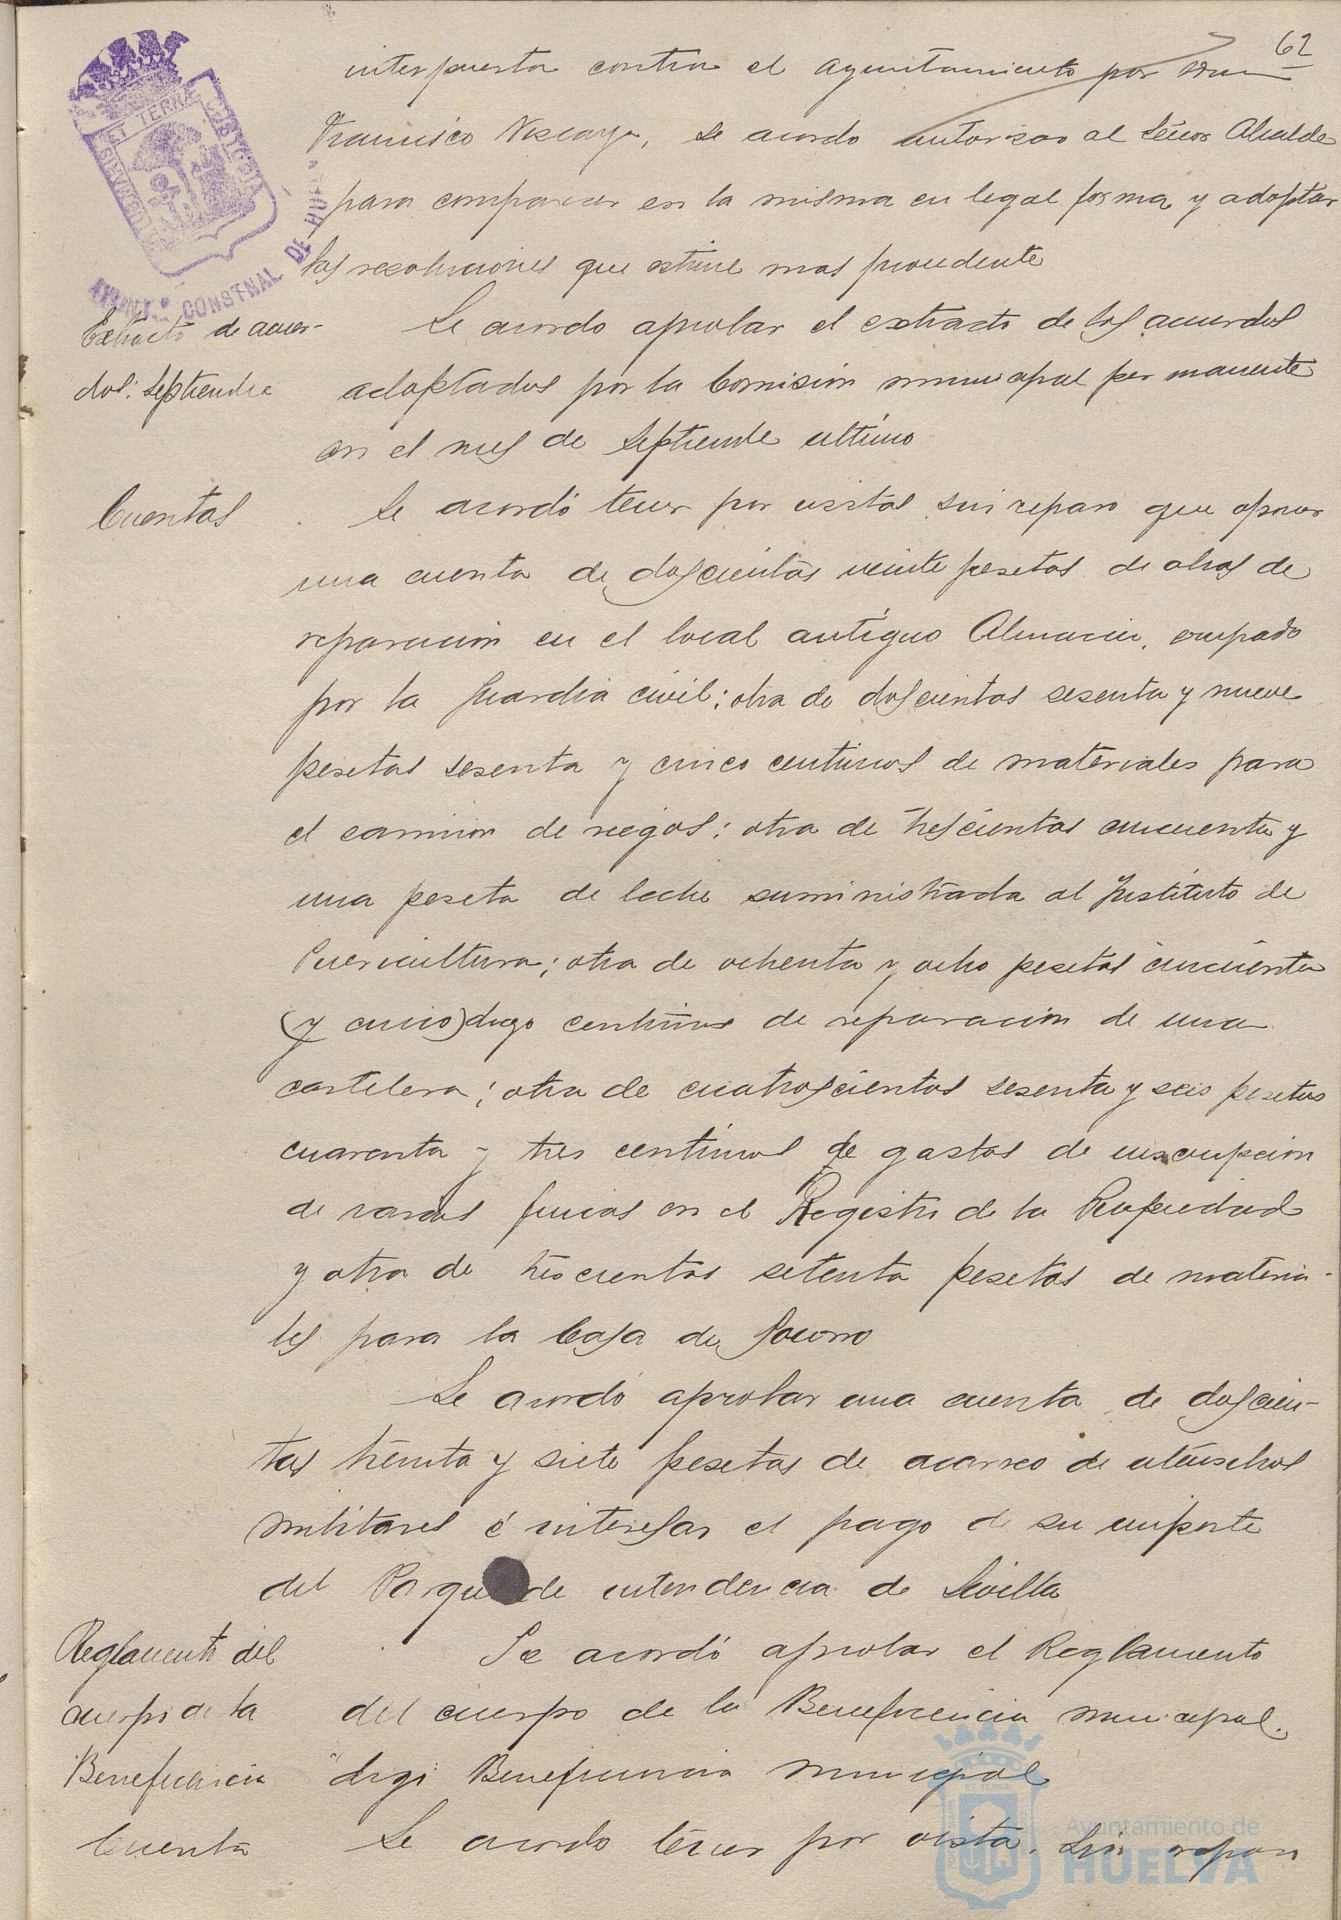 62
interpuesta contra el Ayuntamiento por Don
Francisco Vizcaya, se acordo autorizar al Señor Alcalde
para comparecer en la misma en legal forma y adoptar
las resoluciones que estime mas procedente
Extracto de acuer-
dos: Septiembre
Se acordo aprobar el extracto de los acuerdos
adoptados por la Comision municipal permanente
en el mes de Septiembre ultimo
Cuentas
Se acordó tener por vistas sin reparo que oponer
una cuenta de doscientas veinte pesetas de obras de
reparacion en el local antiguo Almacen, ocupado
por la Guardia civil; otra de doscientas sesenta y nueve
pesetas sesenta y cinco centimos de materiales para
el camion de riegos; otra de trescientas cincuenta y
una peseta de leche suministrada al Instituto de
Puericultura; otra de ochenta y ocho pesetas cincuenta
(y cinco) digo centimos de reparacion de una
cartelera; otra de cuatroscientas sesenta y seis pesetas
cuarenta y tres centimos de gastos de inscripcion
de varias fincas en el Registro de la Propiedad
y otra de trescientas setenta pesetas de materia-
les para la Casa de Socorro
Se acordó aprobar una cuenta de doscien-
tas treinta y siete pesetas de acarreo de utensilios
militares é interesar el pago de su importe
del Parque de intendencia de Sevilla
Reglamento del
cuerpo de la
Beneficencia
Se acordó aprobar el Reglamento
del cuerpo de la Beneficencia municipal.
digo Beneficencia Municipal
Cuenta
Se acordo tener por vista sin reparo
ET TERRÆ
CUSTODIA
CONSTNAL DE HUELVA
Ayuntamiento de
HUELVA